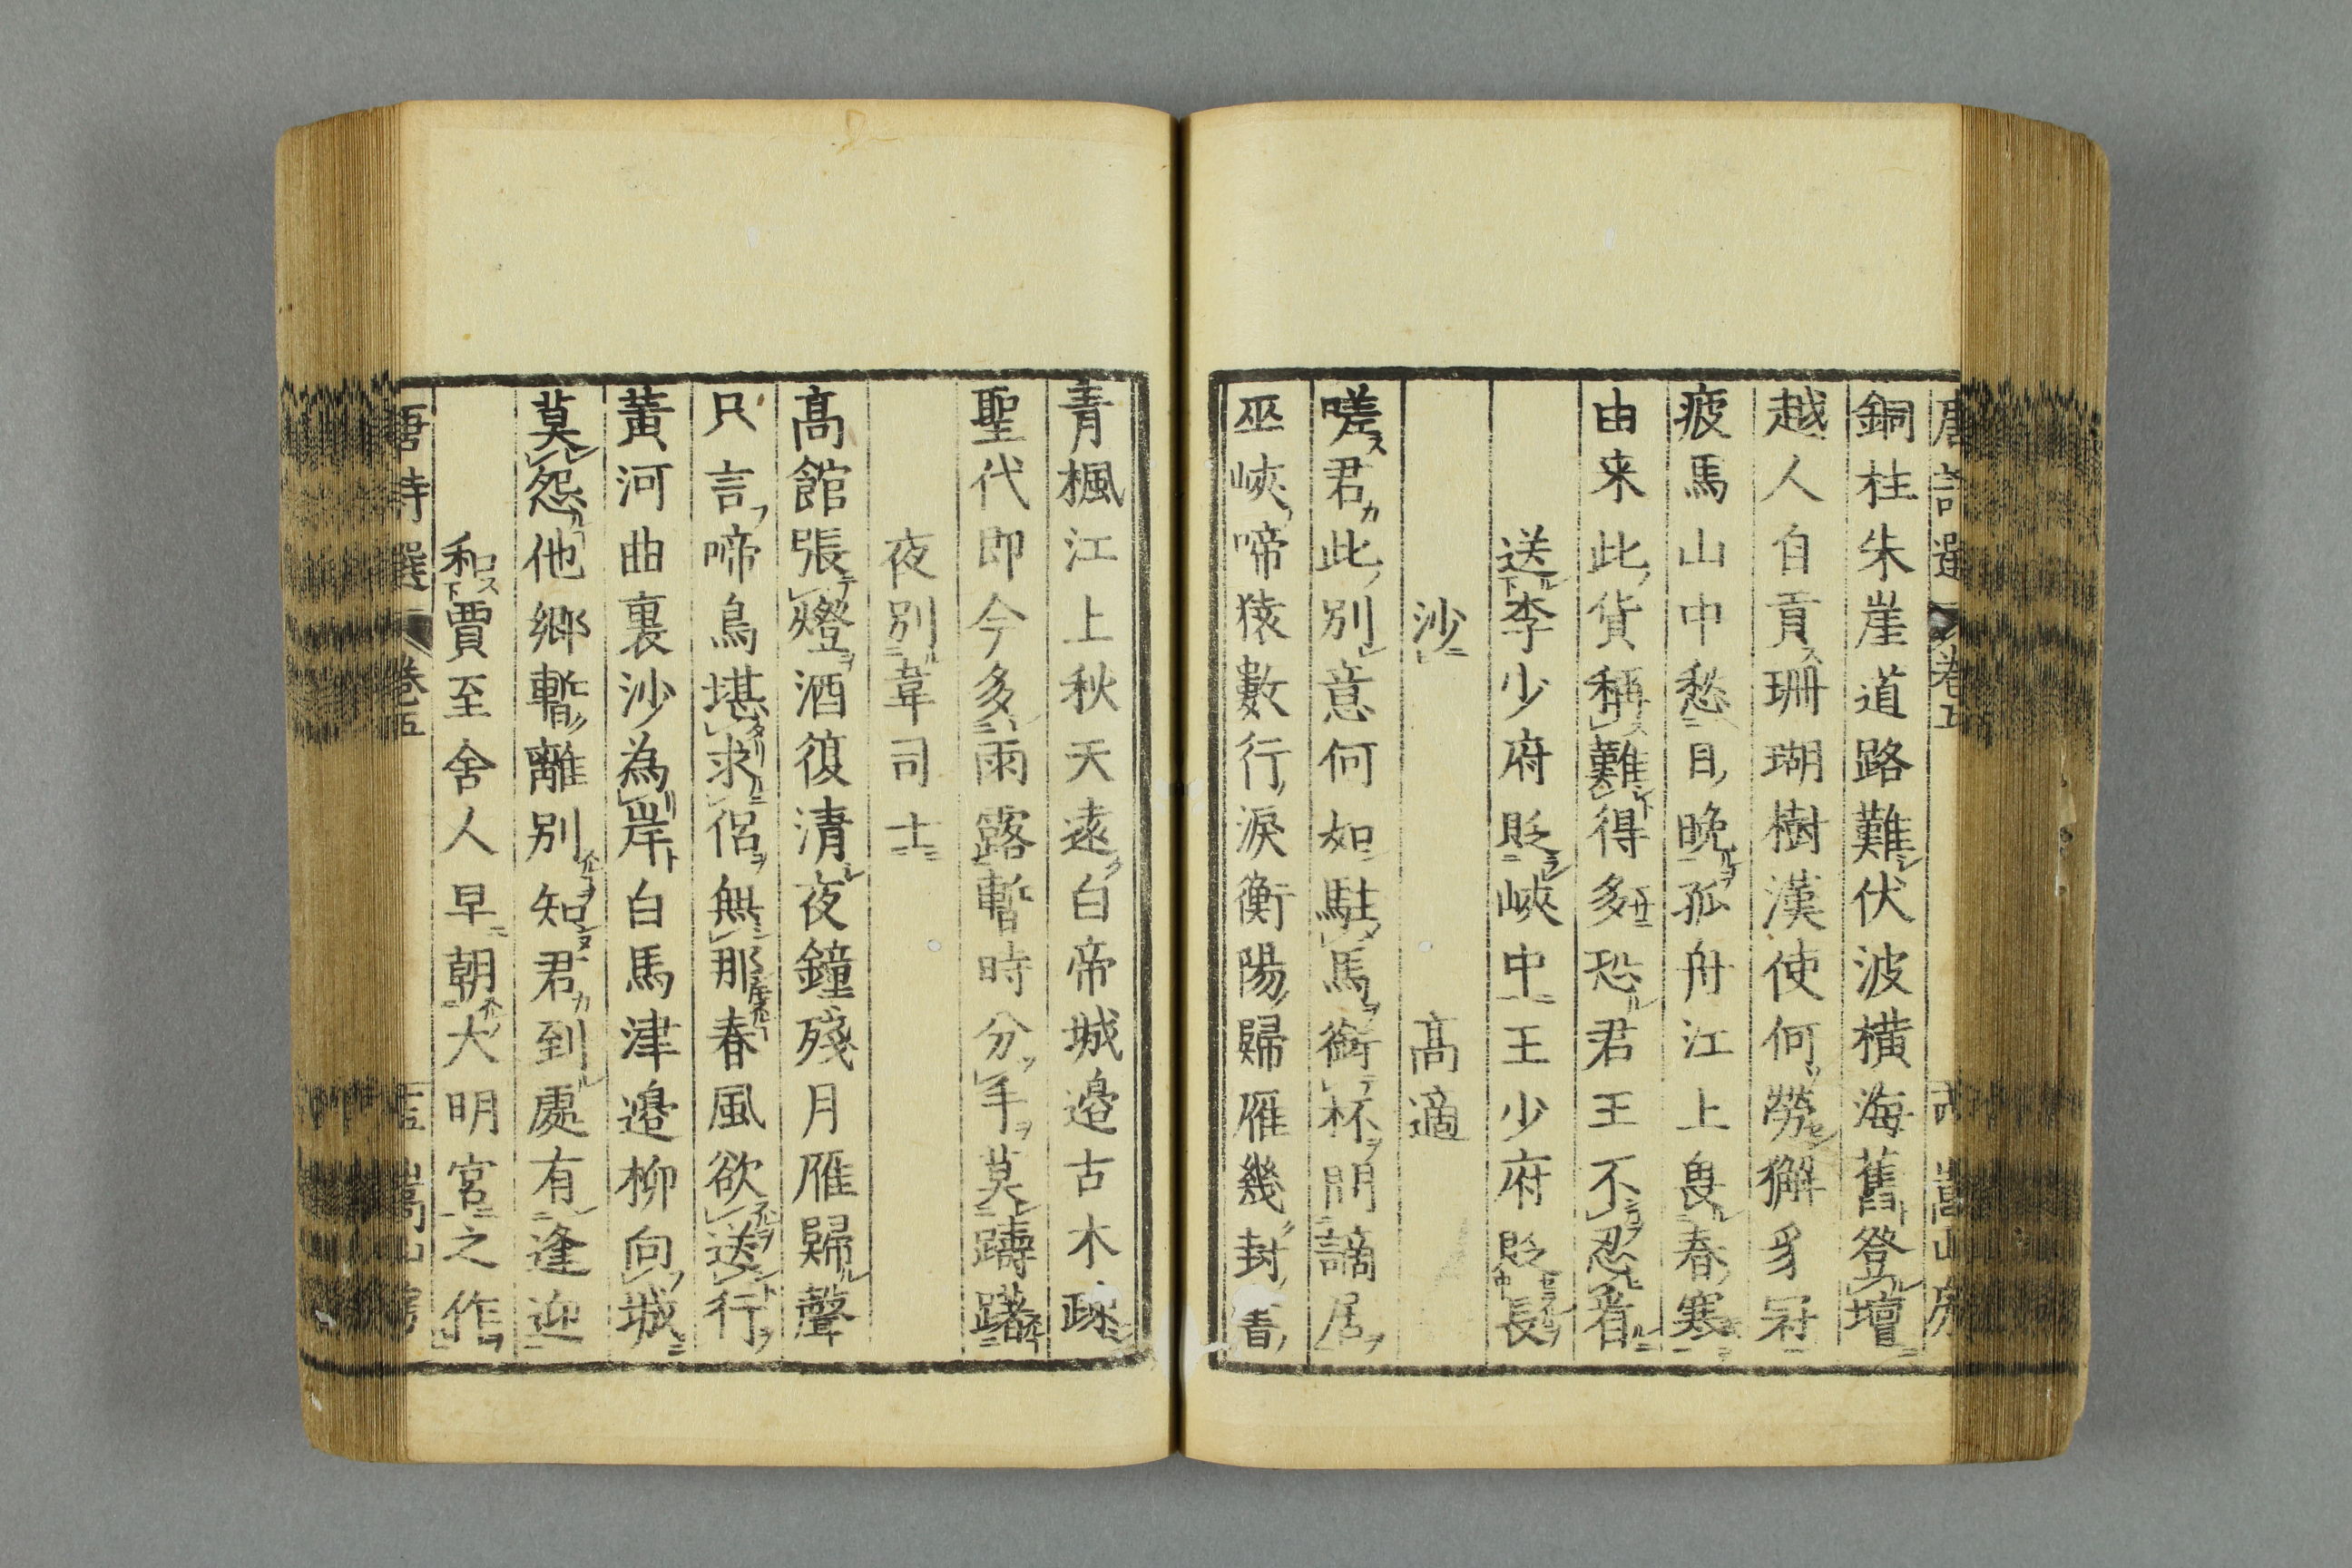 唐詩選 卷五 嵩山房
銅柱朱崖道路難伏波橫海舊登壇
越人自貢珊瑚樹漢使何勞獬豸冠
疲馬山中愁日晚孤舟江上畏春寒
由来此貨稱難得多恐君王不忍看
送李少府貶峽中王少府貶長
沙
高適
嗟君此別意何如駐馬銜杯問謫居
巫峽啼猿數行淚衡陽歸雁幾封書
青楓江上秋天遠白帝城邉古木疎
聖代即今多雨露暫時分手莫躊躇
夜別韋司士
高館張燈酒復清夜鐘殘月雁歸聲
只言啼鳥堪求侶無那春風欲送行
黃河曲裏沙為岸白馬津邉柳向城
莫怨他鄉暫離別知君到處有逢迎
和賈至舍人早朝大明宮之作
唐詩選 卷五 嵩山房